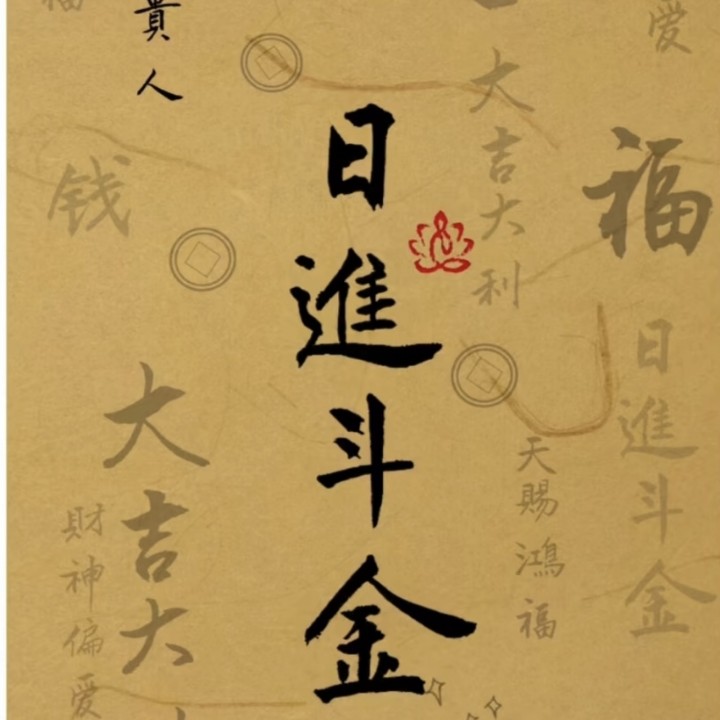 日進斗金
貴人
福
愛
大吉大利
福
日進斗金
天賜鴻福
钱
大吉大
財神偏愛